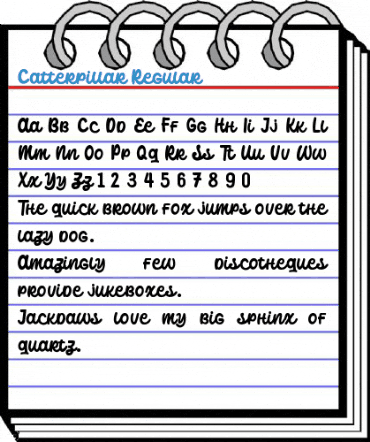 Catterpillar Regular
Aa Bb Cc Dd Ee Ff Gg Hh Ii Jj Kk Ll
Mm Nn Oo Pp Qq Rr Ss Tt Uu Vv Ww
Xx Yy Zz 1 2 3 4 5 6 7 8 9 0
The quick brown fox jumps over the
lazy dog.
Amazingly few discotheques
provide jukeboxes.
Jackdaws love my big sphinx of
quartz.